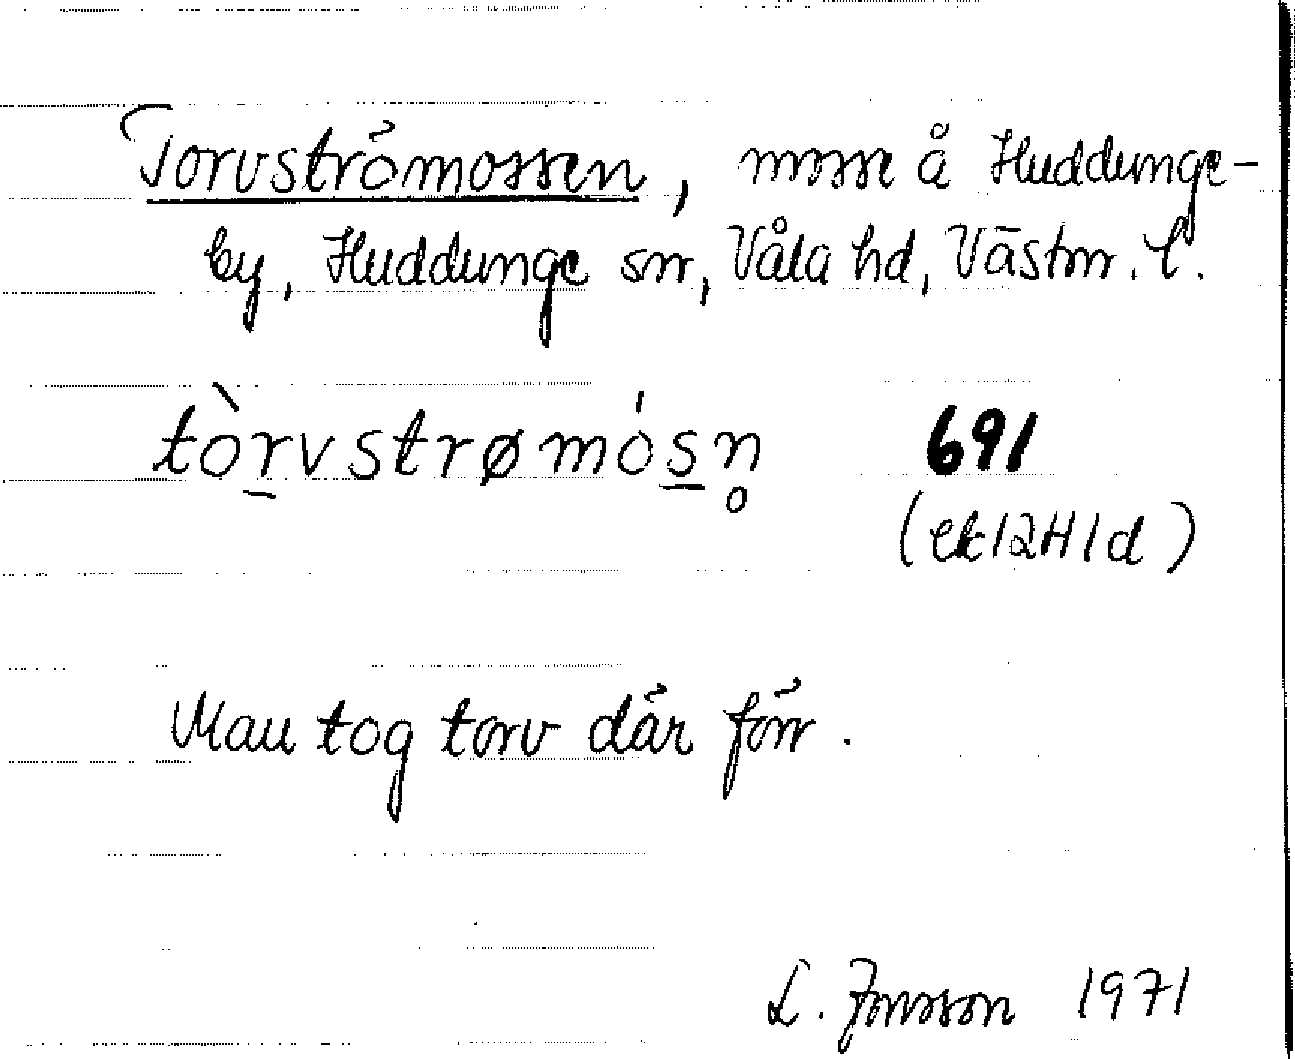 Torvströmossen, mosse å Huddunge-
by, Huddunge sn, Våla hd, Västm. l.
tòr̲vstrømós̲n̥ 691
(ek 12H1d)
Man tog torv där förr.
L. Jonsson 1971